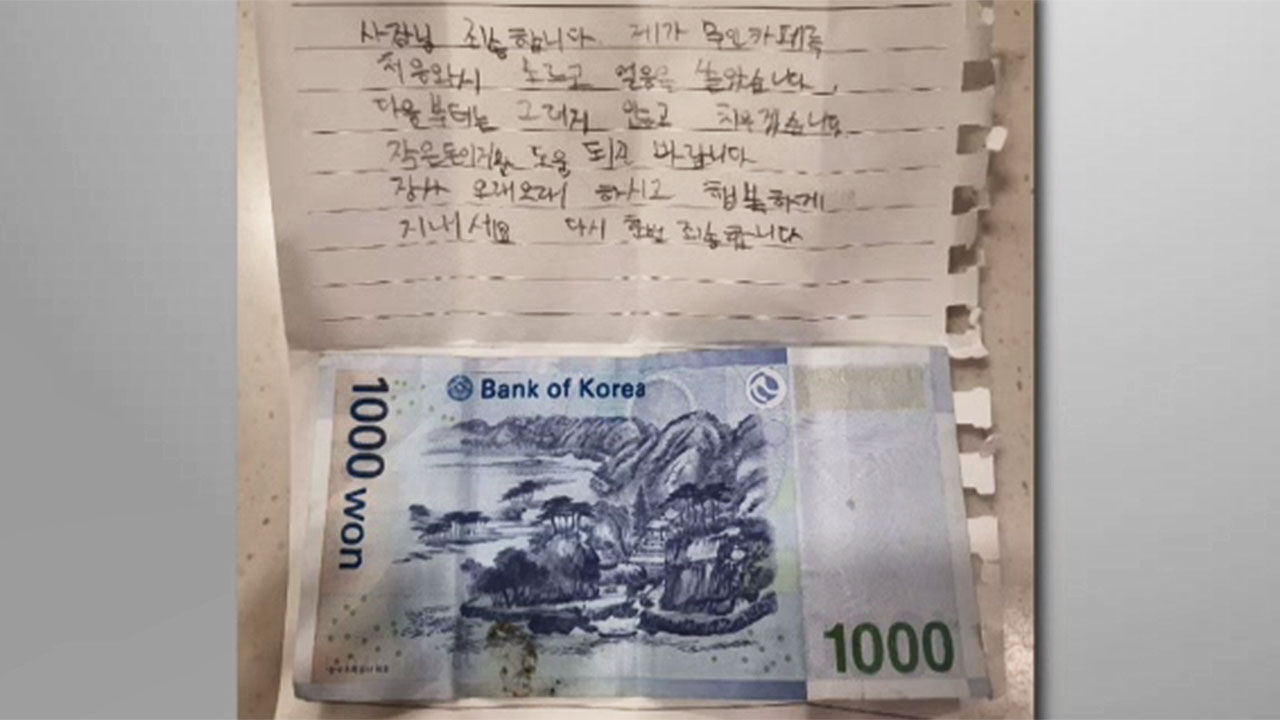 사장님 죄송합니다. 제가 무인카페를
처음와서 모르고 얼음을 쏟았습니다.
다음부터는 그러지 안고 치우겠습니다
작은돈이지만 도움 되길 바랍니다
장사 오래오래 하시고 행복하게
지내세요 다시 한번 죄송합니다
Bank of Korea
1000 won
1000